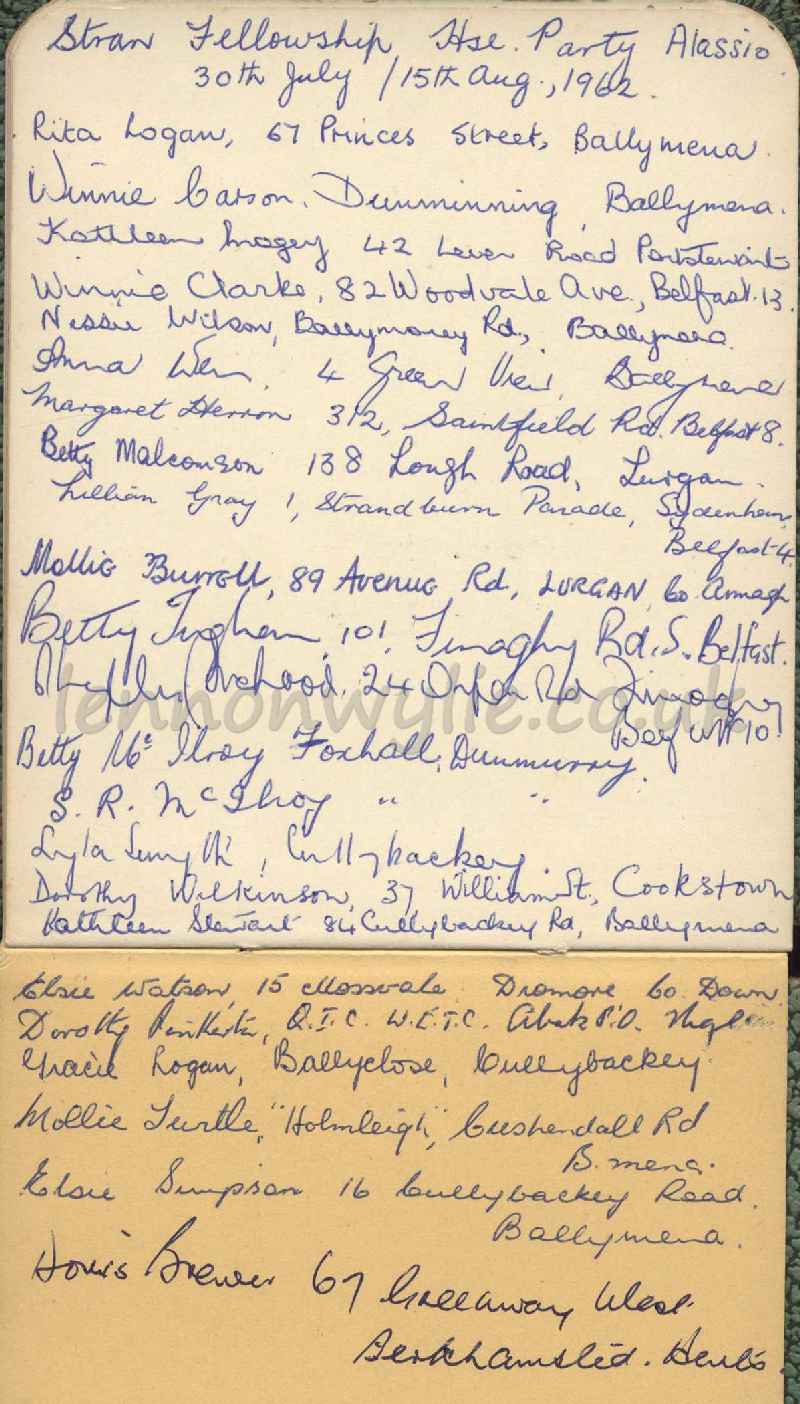 Stran Fellowship Hse. Party Alassio
30th July / 15th Aug., 1962.
Rita Logan, 67 Princes Street, Ballymena.
Winnie Carson. Dunminning, Ballymena.
Kathleen 42 Lever Road Portstewart
Winnie Clarke, 82 Woodvale Ave., Belfast.13.
Nessie Wilson, Ballymoney Rd., Ballymena.
Anna 4 Green View, Ballymena
Margaret Herron 312, Saintfield Rd. Belfast 8.
Betty Malcomson 138 Lough Road, Lurgan.
Lillian Gray 1, Strandburn Parade, Sydenham,
Belfast-4.
Mollie Burrell, 89 Avenue Rd, LURGAN, Co. Armagh
Betty 101, Finaghy Rd. S. Belfast.
lennonwylie.co.uk
24 Rd Finaghy
Belfast 10
Betty Mc Ilroy Foxhall, Dunmurry.
S. R. McIlroy " "
Lyla Smyth, Cullybackey.
Dorothy Wilkinson, 37 William St., Cookstown
Kathleen Stewart 84 Cullybackey Rd, Ballymena
Elsie Watson, 15 Mossvale Dromore Co. Down
Dorothy Pinkerton, Q.I.C. W.E.T.C. Abak P.O.
Gracie Logan, Ballyclose, Cullybackey.
Mollie Turtle, "Holmleigh", Cushendall Rd
B.mena.
Elsie Simpson 16 Cullybackey Road.
Ballymena.
Brewer 67 West
Berkhamsted. Herts.